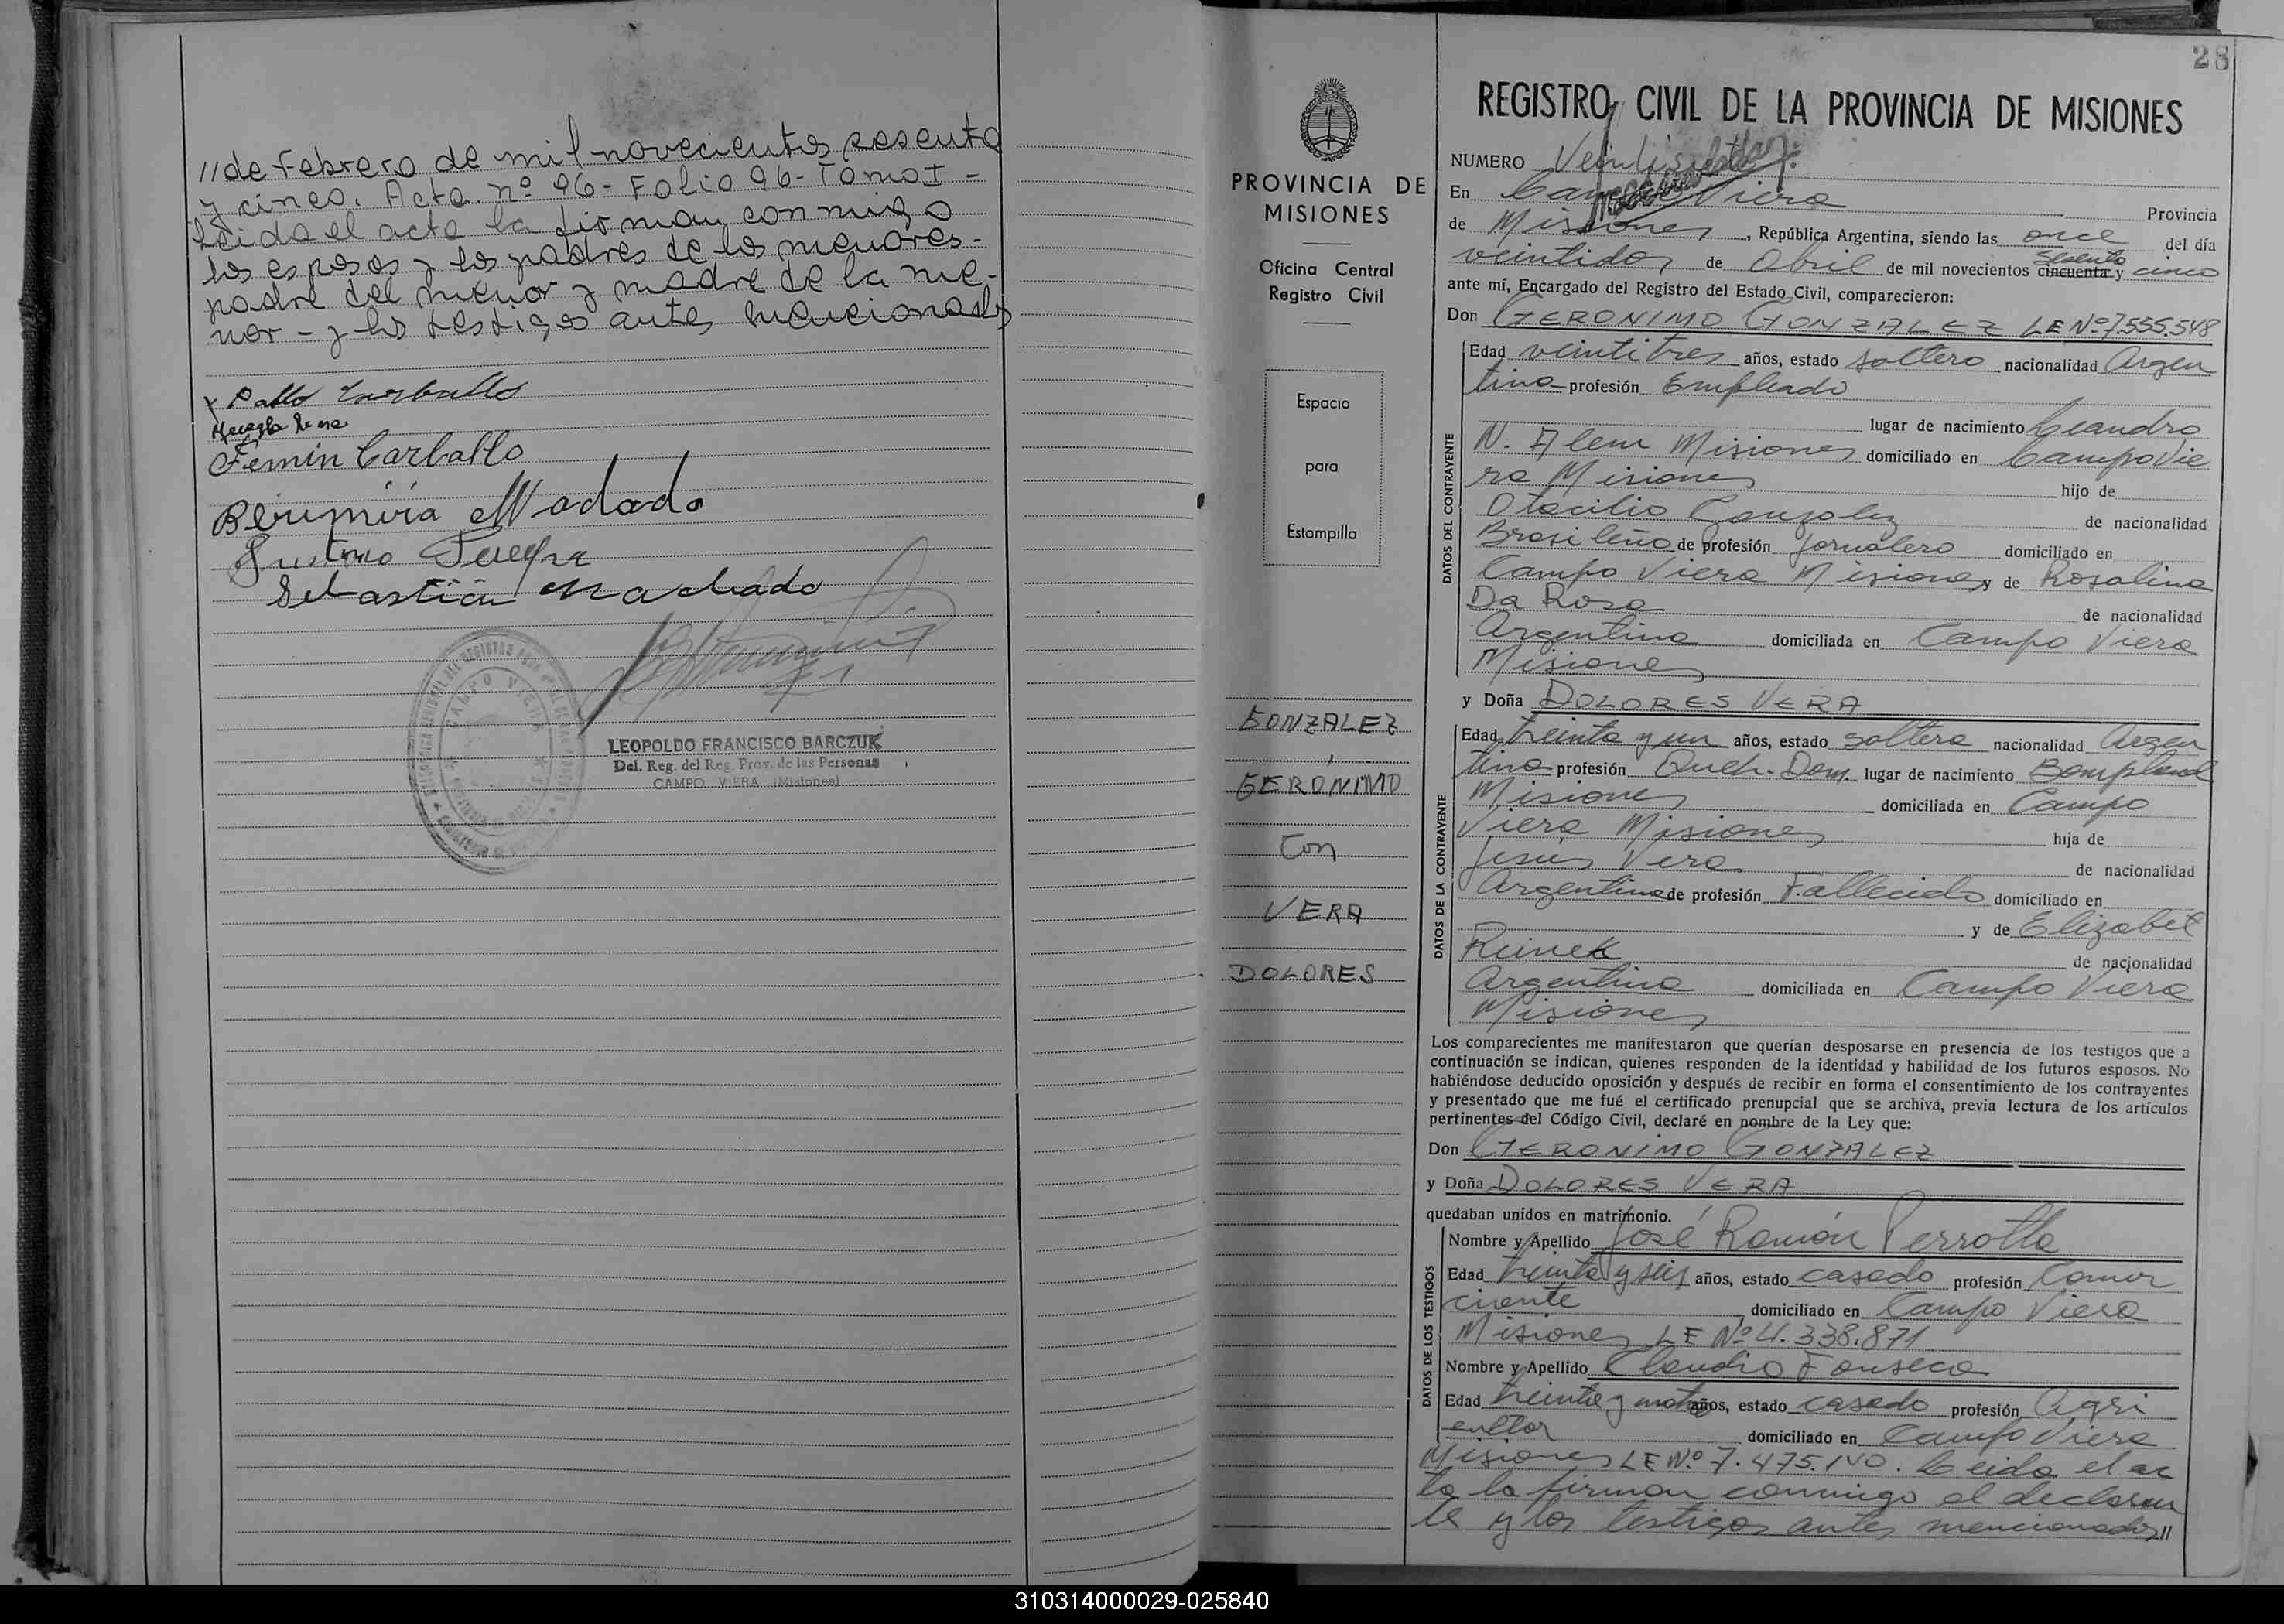 //de Febrero de mil novecientos sesenta
y cinco. Acta. nº 96 - Folio 96 - Tomo I -
Leida el acta la firman conmigo
los esposos y los padres de los menores -
padre del menor y madre de la me-
nor - y los testigos antes mencionados
x Pablo Carballo
Femin Carballo
Sebastián Machado
CAMPO VIERA
LEOPOLDO FRANCISCO BARCZUK
Del. Reg. del Reg. Prov. de las Personas
CAMPO VIERA (Misiones)
PROVINCIA DE
MISIONES
Oficina Central
Registro Civil
Espacio
para
Estampilla
GONZALEZ
GERONIMO
Con
VERA
DOLORES
28
REGISTRO CIVIL DE LA PROVINCIA DE MISIONES
NUMERO
En Campo Viera Provincia
de Misiones, República Argentina, siendo las once del día
veintidos de Abril de mil novecientos cincuenta y sesenta cinco
ante mí, Encargado del Registro del Estado Civil, comparecieron:
Don GERONIMO GONZALEZ LE Nº 7.555.548
DATOS DEL CONTRAYENTE
Edad veintitres años, estado soltero nacionalidad Argen
tina profesión Empleado
lugar de nacimiento Leandro
N. Alem Misiones domiciliado en Campo Vie
ra Misiones hijo de
Otacilio Gonzalez de nacionalidad
Brasileño de profesión Jornalero domiciliado en
Campo Viera Misiones y de Rosalina
Da Rosa de nacionalidad
Argentina domiciliada en Campo Viera
Misiones
y Doña DOLORES VERA
DATOS DE LA CONTRAYENTE
Edad treinta y un años, estado soltera nacionalidad Argen
tina profesión Queh. Dom. lugar de nacimiento Bompland
Misiones domiciliada en Campo
Viera Misiones hija de
Jesús Vera de nacionalidad
Argentina de profesión Fallecido domiciliado en
y de Elizabet
Reinek de nacionalidad
Argentina domiciliada en Campo Viera
Misiones
Los comparecientes me manifestaron que querían desposarse en presencia de los testigos que a
continuación se indican, quienes responden de la identidad y habilidad de los futuros esposos. No
habiéndose deducido oposición y después de recibir en forma el consentimiento de los contrayentes
y presentado que me fué el certificado prenupcial que se archiva, previa lectura de los artículos
pertinentes del Código Civil, declaré en nombre de la Ley que:
Don GERONIMO GONZALEZ
y Doña DOLORES VERA
quedaban unidos en matrimonio.
DATOS DE LOS TESTIGOS
Nombre y Apellido José Ramón Perrotta
Edad treinta y seis años, estado casado profesión Comer
ciante domiciliado en Campo Viera
Misiones LE Nº 4.338.871
Nombre y Apellido Claudio Fonseca
Edad treinta y años, estado casado profesión Agri
cultor domiciliado en Campo Viera
Misiones LE Nº 7.475.140. Leida el ac
ta la firman conmigo el declaran
te y los testigos antes mencionados//
310314000029-025840